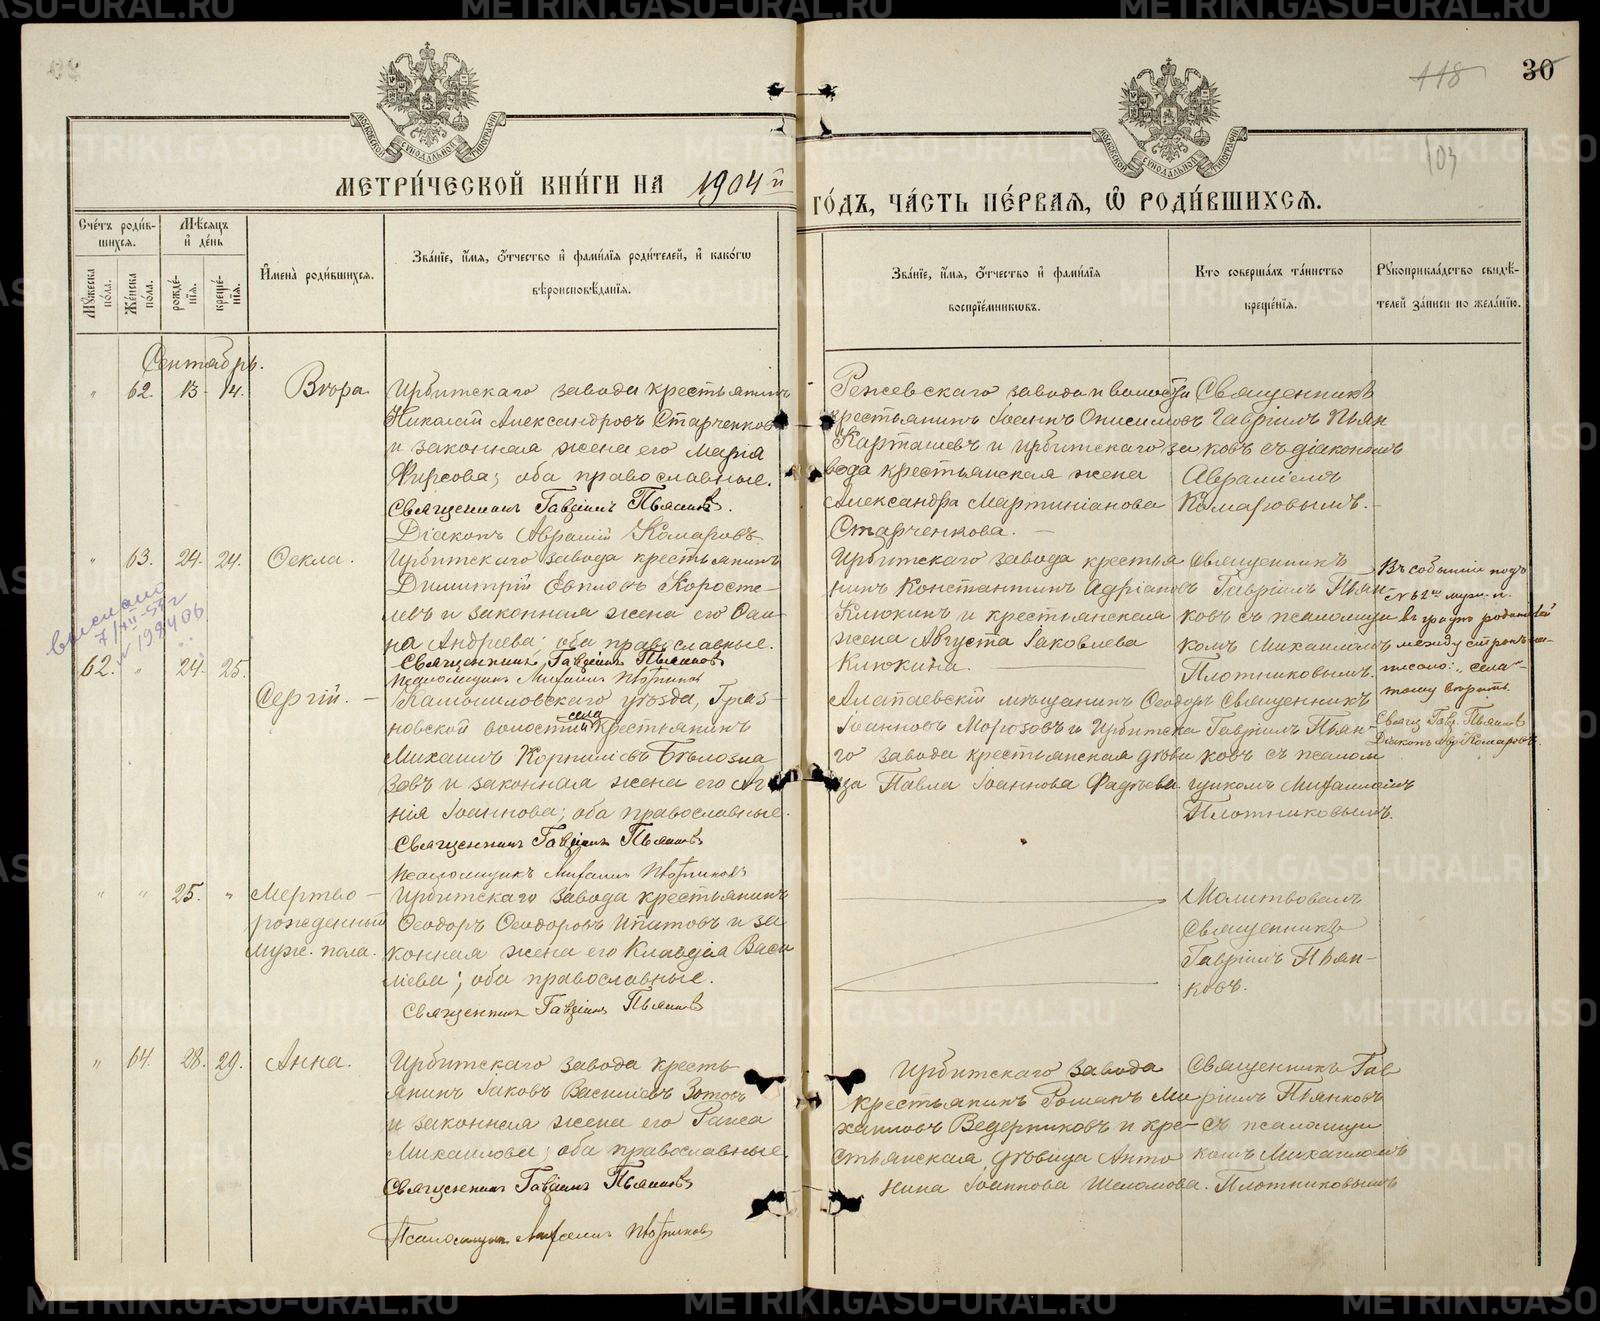 30
118
103
МОСКОВСКОЙ СУНОДАЛЬНОЙ ТИПОГРАФІИ
МОСКОВСКОЙ СУНОДАЛЬНОЙ ТИПОГРАФІИ
МЕТРИ́ЧЕСКОЙ КНИ́ГИ НА 1904 й
ГО́ДЪ, ЧА́СТЬ ПЕ́РВАЯ, Ѿ РОДИ́ВШИХСЯ.
Сче́тъ роди́в-
шихся.
Мѣ́сяцъ
и҆ де́нь
Мꙋ́жеска по́ла.
Же́нска по́ла.
рожде́-нїя.
креще́-нїя.
И҆мена̀ роди́вшихся.
Зва́нїе, и҆́мя, ѻ҆́тчество и҆ фами́лїя роди́телей, и҆ како́гѡ
вѣроисповѣ́данїя.
Зва́нїе, и҆́мя, ѻ҆́тчество и҆ фами́лїя
воспрїе́мникѡвъ.
Кто соверша́лъ та́инство
креще́нїя.
Рꙋкоприкла́дство свидѣ́-
телей за́писи по жела́нїю.
Сентябрь.
" 62. 13. 14. Вѣра.
Ирбитскаго завода крестьянинъ
Николай Александровъ Старченковъ
и законная жена его Марія
Фирсова; оба православные.
Священникъ Гавріилъ Пьянковъ.
Діаконъ Аврамій Комаровъ
Режевскаго завода и волости
крестьянинъ Іоаннъ Онисимовъ
Карташевъ и Ирбитскаго за
вода крестьянская жена
Александра Мартиніанова
Старченкова.
Священникъ
Гавріилъ Пьян
ковъ съ діакономъ
Авраміемъ
Комаровымъ.
" 63. 24. 24. Ѳекла.
Ирбитскаго завода крестьянинъ
Димитрій Евпловъ Коросте-
левъ и законная жена его Ѳаи
на Андреева; оба православные.
Священникъ Гавріилъ Пьянковъ
Псаломщикъ Михаилъ Плотниковъ
Ирбитскаго завода крестья
нинъ Константинъ Адріановъ
Клюкинъ и крестьянская
жена Августа Іаковлева
Клюкина.
Священникъ
Гавріилъ Пьян
ковъ съ псаломщи
комъ Михаиломъ
Плотниковымъ.
Въ событіи подъ
№ 62мъ муж. п.
въ графѣ родителей
между строкъ на-
писано: "села"
тому вѣрить.
Свящ. Гавр. Пьянковъ
Діаконъ Авр. Комаровъ.
выслано
7/XII-55 г
№ 198406
62. " 24. 25.
Сергій.
Камышловскаго уѣзда, Гряз-
новской волости села крестьянинъ
Михаилъ Корниліевъ Бѣлогла
зовъ и законная жена его Аг
нія Іоаннова; оба православные.
Священникъ Гавріилъ Пьянковъ
Псаломщикъ Михаилъ Плотниковъ
Алапаевскій мѣщанинъ Ѳеодоръ
Іоанновъ Морозовъ и Ирбитска
го завода крестьянская дѣви
ца Павла Іоаннова Фадѣева.
Священникъ
Гавріилъ Пьян
ковъ съ псалом
щикомъ Михаиломъ
Плотниковымъ.
" " 25. " Мертво-
рожденный
муж. пола.
Ирбитскаго завода крестьянинъ
Ѳеодоръ Ѳеодоровъ Ипатовъ и за
конная жена его Клавдія Васи
лiева; оба православные.
Священникъ Гавріилъ Пьянковъ
Молитвовалъ
Священникъ
Гавріилъ Пьян-
ковъ.
" 64. 28. 29. Анна.
Ирбитскаго завода кресть
янинъ Іаковъ Василіевъ Зотовъ
и законная жена его Раиса
Михаилова; оба православные.
Священникъ Гавріилъ Пьянковъ
Псаломщикъ Михаилъ Плотниковъ
Ирбитскаго завода
крестьянинъ Романъ Ми
хаиловъ Ведерниковъ и кре-
стьянская дѣвица Анто
нина Іоаннова Шеломова.
Священникъ Гав
ріилъ Пьянковъ
съ псаломщи
комъ Михаиломъ
Плотниковымъ
METRIKI.GASO-URAL.RU